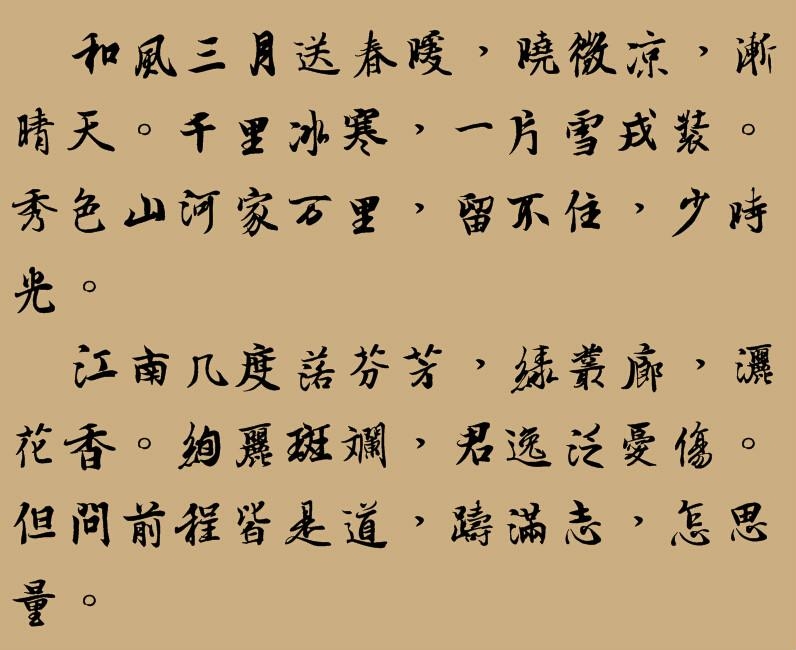 和風三月送春暖，曉微凉，漸
晴天。千里冰寒，一片雪戎裝。
秀色山河家万里，留不住，少時
光。
江南几度落芬芳，綠叢廊，灑
花香。絢麗斑斕，君逸泛憂傷。
但問前程皆是道，躊滿志，怎思
量。